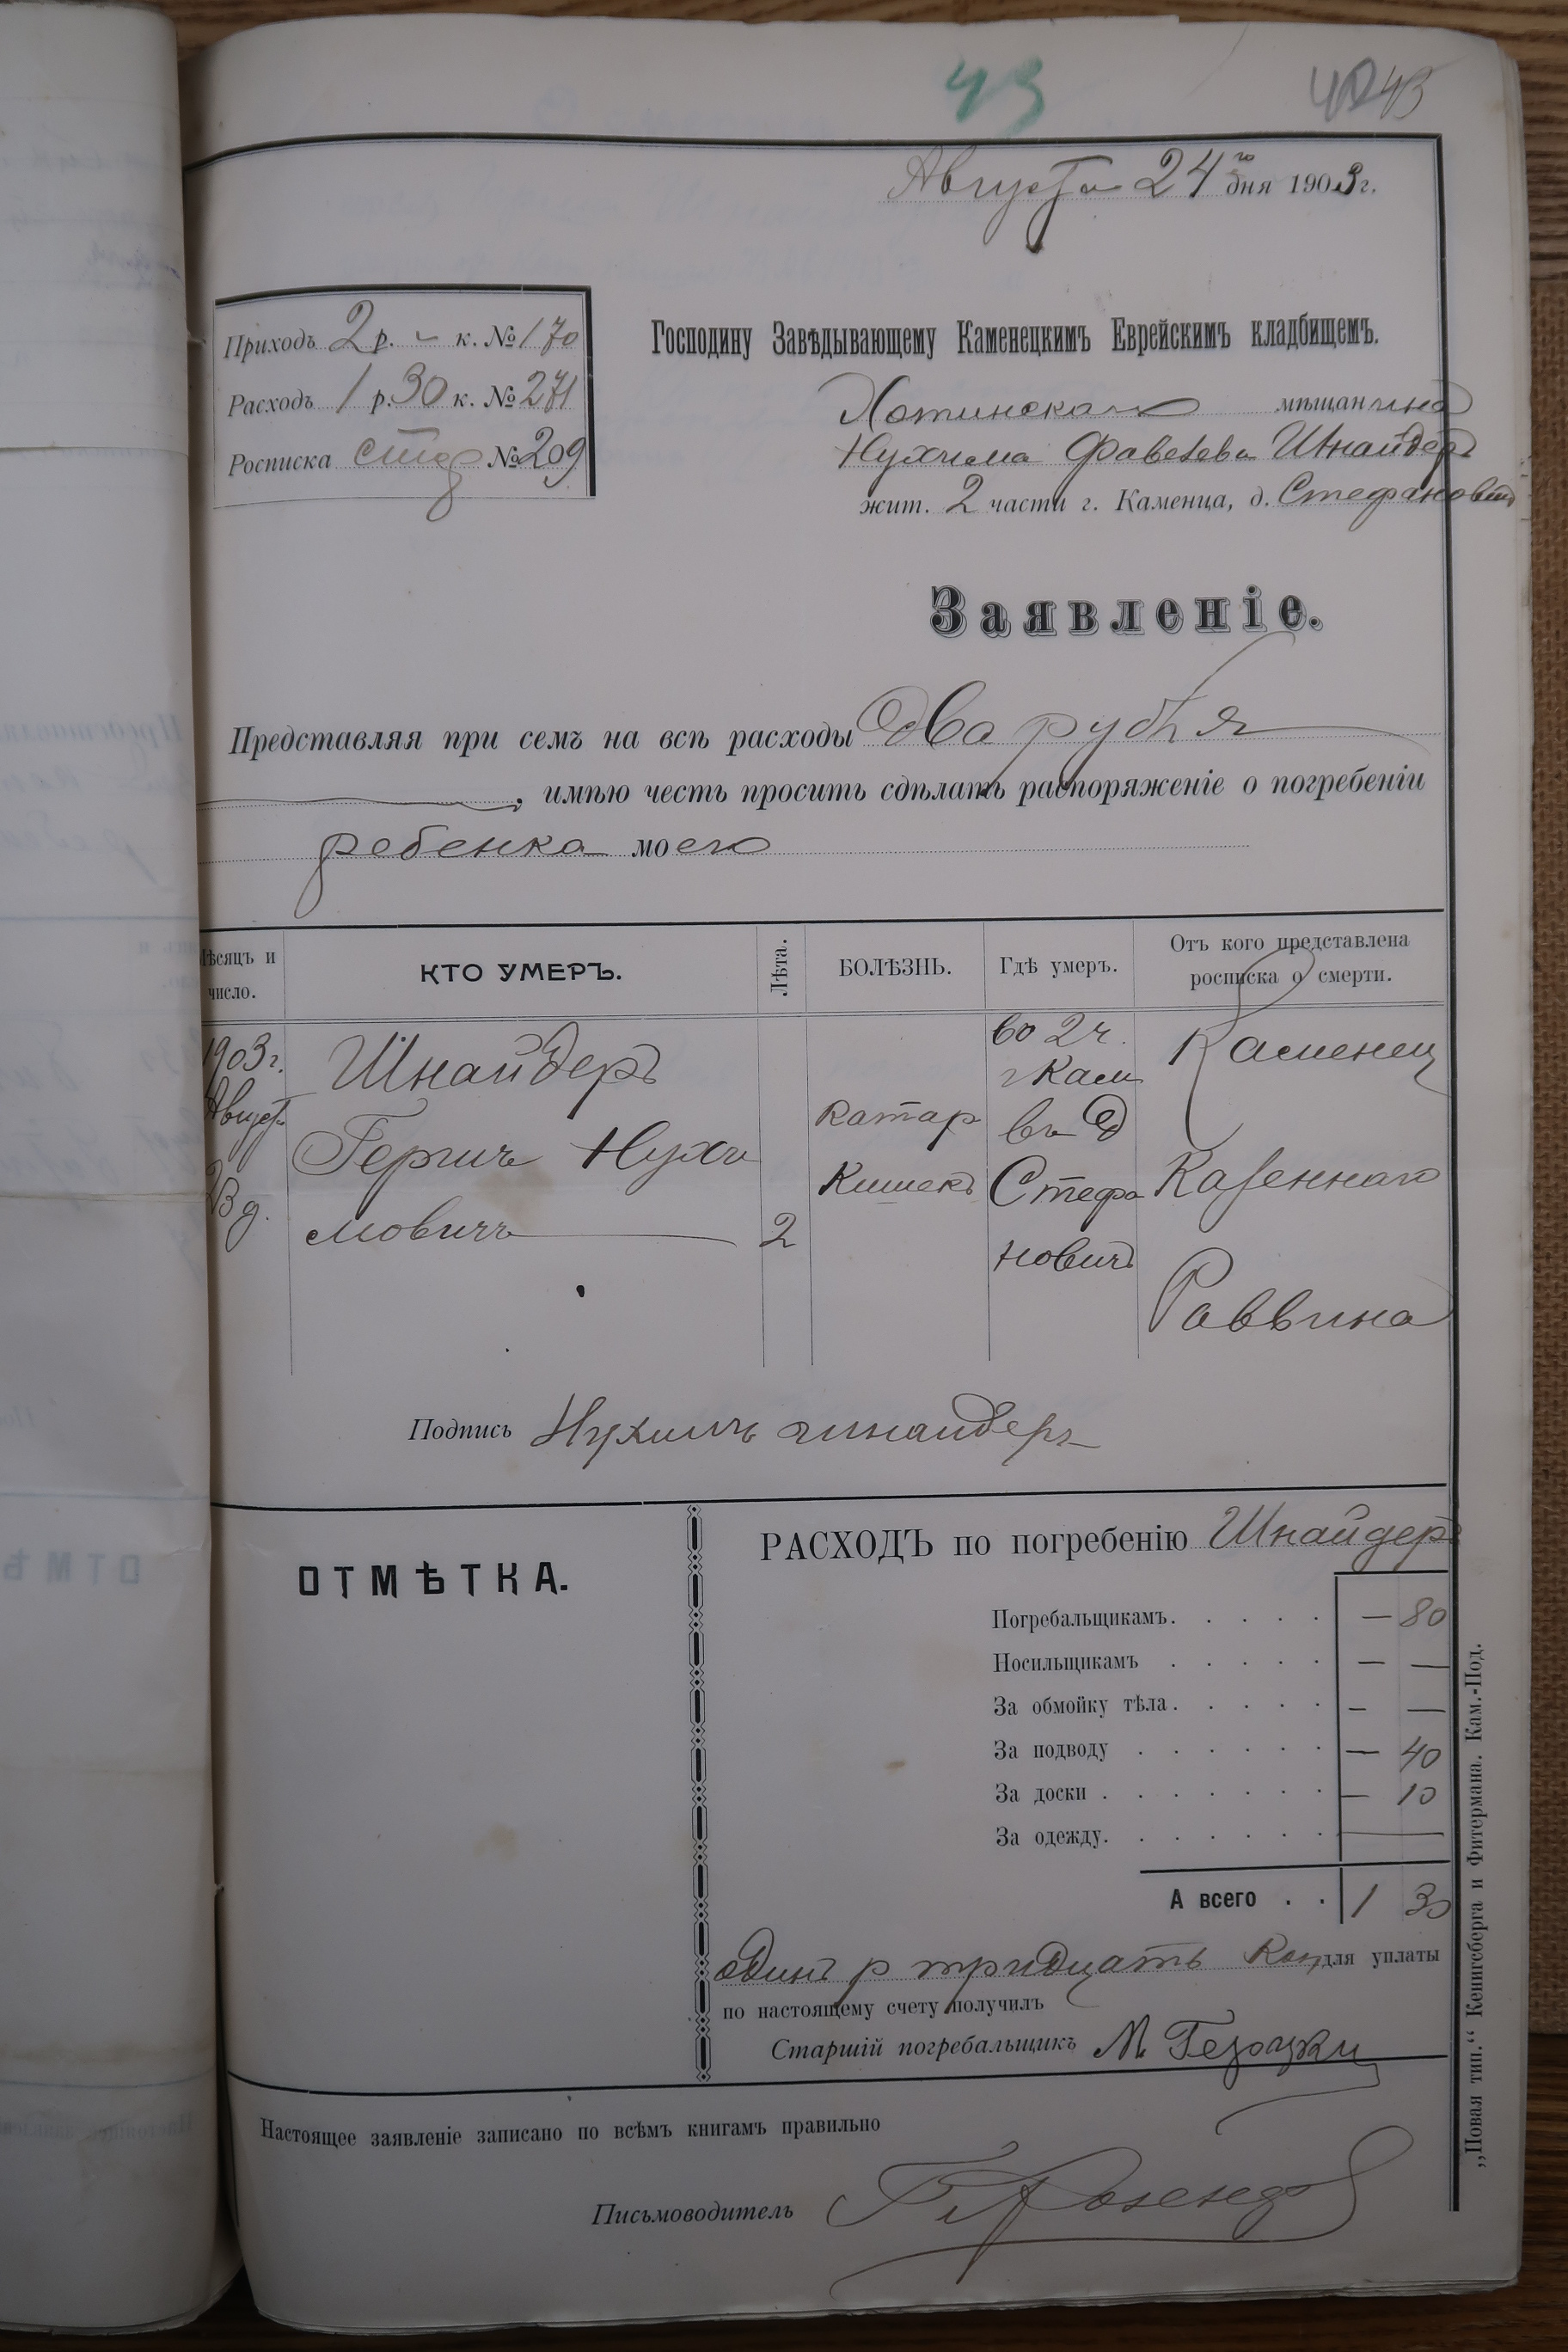 43
43
Августа 24го дня 1903 г.
Приходъ 2 р. – к. № 170
Расходъ 1 р. 30 к. № 271
Росписка № 209
Господину Завѣдывающему Каменецкимъ Еврейскимъ кладбищемъ.
Хотинскаго мѣщанина
Нухима Шнайдеръ
жит. 2 части г. Каменца, д. Стефановичъ
Заявленіе.
Представляя при семъ на всѣ расходы два рубля
, имѣю честь просить сдѣлать распоряженіе о погребеніи
ребенка моего
Мѣсяцъ и число.
КТО УМЕРЪ.
Лѣта.
БОЛѢЗНЬ.
Гдѣ умеръ.
Отъ кого представлена росписка о смерти.
1903 г.
Август
23 д.
Шнайдеръ
Гершъ Нухи
мовичъ
2
катар
кишекъ
во 2 ч.
г Кам
въ д
Стефа
новичъ
Каменец
Казеннаго
Раввина
Подпись Нухимъ шнайдеръ
ОТМѢТКА.
РАСХОДЪ по погребенію Шнайдеръ
Погребальщикамъ. . . . . — 80
Носильщикамъ . . . . . — —
За обмойку тѣла. . . . . — —
За подводу . . . . . . — 40
За доски . . . . . . . — 10
За одежду. . . . . . . —
А всего . . 1 30
одинъ р тридцать коп для уплаты
по настоящему счету получилъ
Старшій погребальщикъ М.
Настоящее заявленіе записано по всѣмъ книгамъ правильно
Письмоводитель
„Новая тип.“ Кенигсберга и Фитермана. Кам.-Под.